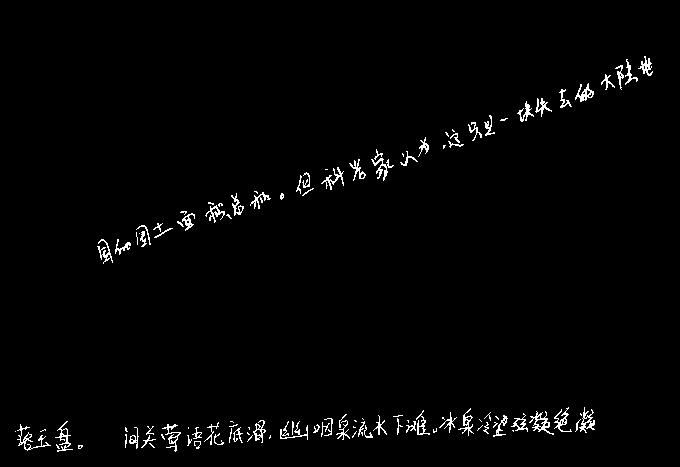 国的国土面积总和。但科学家认为,这只是一块失去的大陆地
落玉盘。 间关莺语花底滑,幽咽泉流水下滩。冰泉冷涩弦凝绝凝